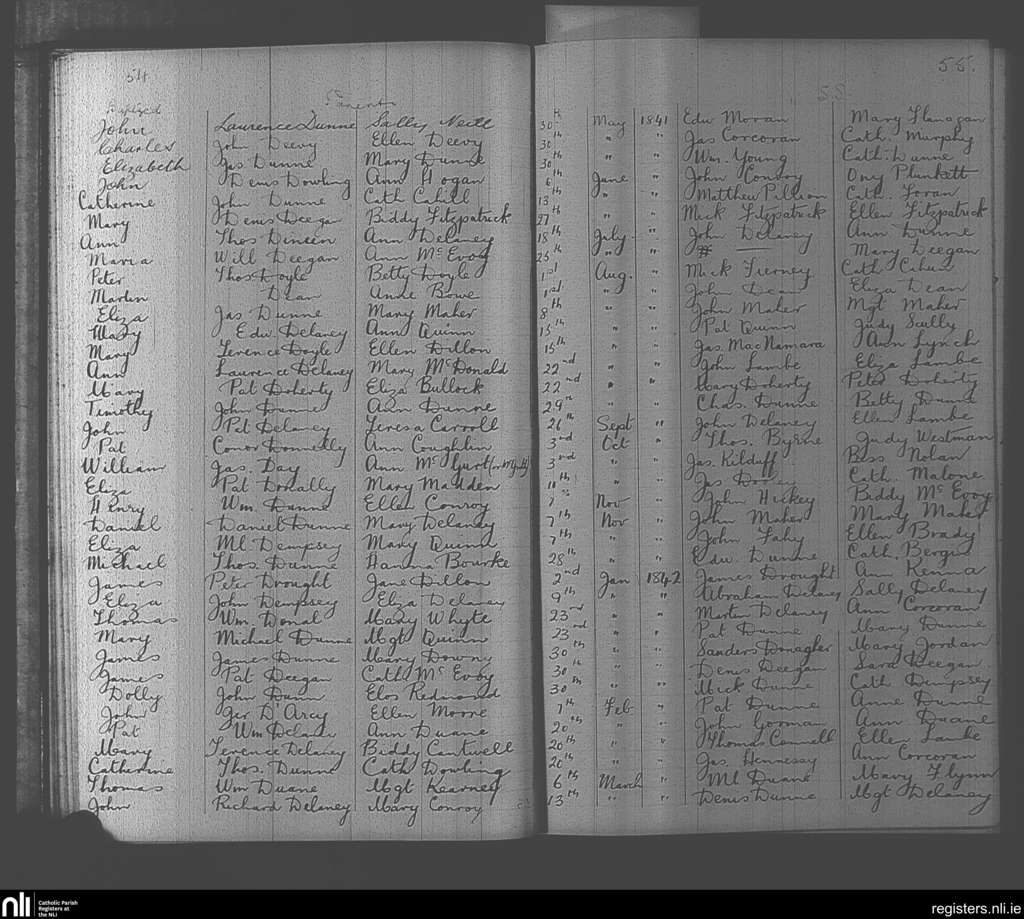 54
Baptized Parents
John Laurence Dunne Sally Neill
Charles John Deevy Ellen Deevy
Elizabeth Jas Dunne Mary Dunne
John Denis Dowling Ann Hogan
Catherine John Dunne Cath Cahill
Mary Denis Deegan Biddy Fitzpatrick
Ann Thos Dineen Ann Delaney
Maria Will Deegan Ann McEvoy
Peter Thos. Doyle Betty Doyle
Martin Dean Anne Bowe
Eliza Jas Dunne Mary Maher
Mary Edw Delaney Ann Quinn
Mary Terence Doyle Ellen Dillon
Ann Laurence Delaney Mary McDonald
Mary Pat Doherty Eliza Bullock
Timothy John Dunne Ann Dunne
John Pat Delaney Teresa Carroll
Pat Conor Donnelly Ann Coughlin
William Jas. Day Ann McGurt
Eliza Pat Donally Mary Madden
Henry Wm. Dunne Ellen Conroy
Daniel Daniel Dunne Mary Delaney
Eliza Ml. Dempsey Mary Quinn
Michael Thos. Dunne Hanna Bourke
James Peter Drought Jane Dillon
Eliza John Dempsey Eliza Delaney
Thomas Wm. Donal Mary Whyte
Mary Michael Dunne Mgt Quinn
James James Dunne Mary Downy
James Pat Deegan Cath McEvoy
Dolly John Dunn Elos Redmond
John Ger D'Arcy Ellen Moore
Pat Wm Delany Ann Duane
Mary Terence Delaney Biddy Cantwell
Catherine Thos. Dunne Cath Dowling
Thomas Wm Duane Mgt Kearney
John Richard Delaney Mary Conroy
55.
S.S.
30th May 1841 Edw Moran Mary Flanagan
30th " " Jas Corcoran Cath. Murphy
30th " " Wm. Young Cath. Dunne
6th June " John Conroy Ony Plunkett
13th " " Matthew Pillion Cath. Foran
27th " " Mick Fitzpatrick Ellen Fitzpatrick
18th July " John Delaney Ann Dunne
25th " " # — Mary Deegan
1st Aug. " Mick Tierney Cath Cahill
1st " " John Dean Eliza Dean
8th " " John Maher Mgt Maher
15th " " Pat Quinn Judy Scully
15th " " Jas. MacNamara Ann Lynch
22nd " " John Lambe Eliza Lambe
22nd " " Mary Doherty Peter Doherty
29th " " Chas. Dunne Betty Dunne
26th Sept " John Delaney Ellen Lambe
3rd Oct " Thos. Byrne Judy Westman
3rd " " Jas. Kilduff Bess Nolan
10th " " Jas Cath. Malone
7th Nov " John Hickey Biddy McEvoy
7th Nov " John Maher Mary Maher
7th " " John Fahy Ellen Brady
28th " " Edw Dunne Cath. Bergin
2nd Jan 1842 James Drought Ann Kenna
9th " " Abraham Delaney Sally Delaney
23rd " " Martin Delaney Ann Corcoran
23rd " " Pat Dunne Mary Dunne
30th " " Sanders Donagher Mary Jordan
30th " " Denis Deegan Sara Deegan
30th " " Mick Dunne Cath Dempsey
7th Feb " Pat Dunne Anne Dunne
20th " " John Gorman Ann Duane
20th " " Thomas Connell Ellen Lambe
20th " " Jas. Hennessy Ann Corcoran
6th March " Ml Duane Mary Flynn
13th " " Denis Dunne Mgt Delaney
nli Catholic Parish Registers at the NLI
registers.nli.ie